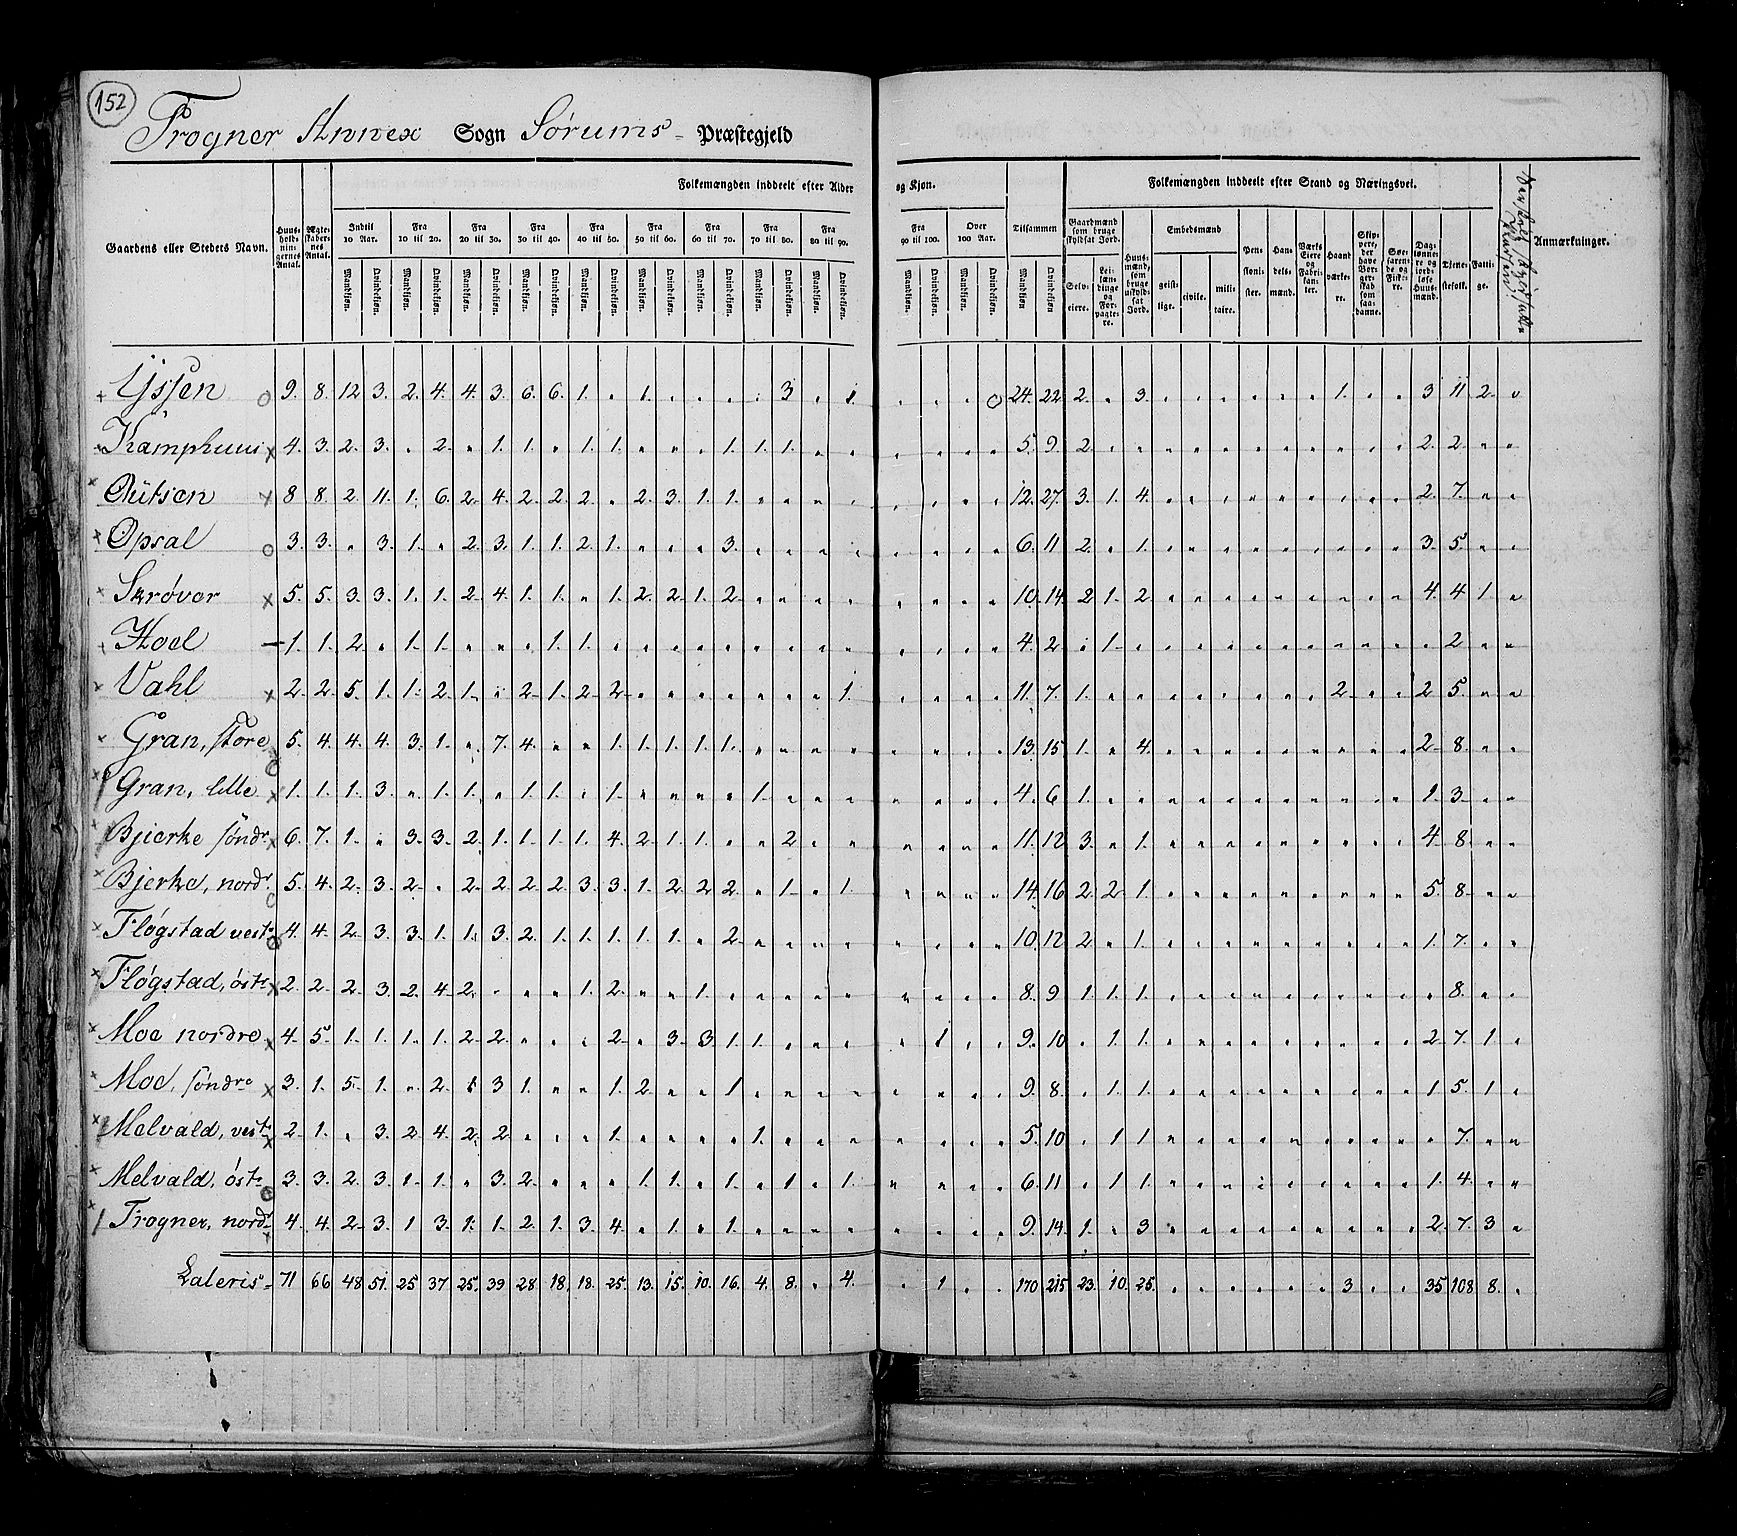 152
Frogner Annex Sogn Sørums Præstegjeld
Folkemængden inddeelt efter Alder og Kjøn. Folkemængden inddeelt efter Stand og Næringsvei.
Gaardens eller Stedets Navn. Huusholdningernes Antal. Ægteskabernes Antal. Indtil 10 Aar. Fra 10 til 20. Fra 20 til 30. Fra 30 til 40. Fra 40 til 50. Fra 50 til 60. Fra 60 til 70. Fra 70 til 80. Fra 80 til 90. Fra 90 til 100. Over 100 Aar. Tilsammen Gaardmænd som bruge skyldsat Jord. Selveiere. Leilændinge og Forpagtere. Huusmænd, som bruge uskyldsat Jord. Embedsmænd geistlige. civile. militaire. Pensionister. Handelsmænd. Værks Eiere og Fabrikanter. Haandværkere. Skippere, der have Borgerskab som saadanne. Søefarende og Fiskere. Daglønnere og jordløse Huusmænd. Tjenestefolk. Fattige. Anmærkninger.
Mandkjøn. Qvindekjøn. Mandkjøn. Qvindekjøn. Mandkjøn. Qvindekjøn. Mandkjøn. Qvindekjøn. Mandkjøn. Qvindekjøn. Mandkjøn. Qvindekjøn. Mandkjøn. Qvindekjøn. Mandkjøn. Qvindekjøn. Mandkjøn. Qvindekjøn. Mandkjøn. Qvindekjøn. Mandkjøn. Qvindekjøn. Mandkjøn Qvindekjøn.
Ijssen 9. 8. 12 3. 2. 4. 4. 3. 6. 6. 1. . 1. . . . . 3. . 1. . . . . 24. 22 2. . 3. . . . . . . 1. . . 3 11 2. .
Kamphuus 4. 3. 2. 3. . 2. . 1. 1. . 1. 1. . . . 1. 1. 1. . . . . . . 5. 9. 2. . . . . . . . . . . . 2. 2. . .
Qutsen 8 8. 2. 11. 1. 6. 2. 4. 2. 2. 2. . 2. 3. 1. 1. . . . . . . . . 12. 27. 3. 1. 4. . . . . . . . . . 2. 7. . .
Opsal 3. 3. . 3. 1. . 2. 3. 1. 1. 2. 1. . . . 3. . . . . . . . . 6. 11 2. . 1. . . . . . . . . . 3. 5. . .
Skrøver 5. 5. 3. 3. 1. 1. 2. 4. 1. 1. . 1. 2. 2. 1. 2. . . . . . . . . 10. 14. 2. 1. 2. . . . . . . . . . 4. 4. 1. .
Hoel 1. 1. 2. . 1. 1. . . . 1. 1. . . . . . . . . . . . . . 4. 2. . 1. . . . . . . . . . . . 2. . .
Vahl 2. 2. 5. 1. 1. 2. 1. . 2. 1. 2. 2. . . . . . . . 1. . . . . 11. 7. 1. . . . . . . . . 2. . . 2 5. . .
Gran, store 5. 4. 4. 4. 3. 1. . 7. 4. . . 1. 1. 1. 1. 1. . . . . . . . . 13. 15. 1. . 4. . . . . . . . . . 2. 8. . .
Gran, lille 1. 1. 1. 3. . 1. 1. . 1. 1. . 1. . . . . 1. . . . . . . . 4. 6. 1. . . . . . . . . . . . 1. 3. . .
Bjerke søndr. 6. 7. 1. . 3. 3. 2. 1. 1. 1. 1. 4. 2. 1. 1. . . 2. . . . . . . 11. 12 3. . 1. . . . . . . . . . 4. 8. . .
Bjerke, nordr. 5. 4. 2. 3. 2. . 2. 2. 2. 2. 3. 3. 1. 2. 2. 2. . 1. . 1. . . . . 14. 16 2. 2. 1. . . . . . . . . . 5. 8. . .
Fløgstad vest. 4. 4. 2. 3. 3. 1. 1. 3. 2. 1. 1. 1. 1. 1. . 2. . . . . . . . . 10. 12 2. . 1. . . . . . . . . . 1. 7. . .
Fløgstad, øst. 2. 2. 2. 3. 2. 4. 2. . . . 1. 2. . . 1. . . . . . . . . . 8. 9 1. 1. 1. . . . . . . . . . . 8. . .
Moe nordre 4. 5. 1. 1. 1. 1. 2. 2. . . . 2. . 3. 3 1. 1. . . . . 1. . . 9. 10. . 1. 1. . . . . . . . . . 2. 7. 1. .
Moe, søndre 3. 1. 5. 1. . 2. . 3 1. . . 1. 2. . . 1. . . . . . . . . 9. 8. . 1. 1. . . . . . . . . . 1. 5. 1. .
Melvald, vest. 2. 1. . 3. 2 4. 2. 2. . . . 1. . . . . 1. . . . . . . . 5. 10. . 1. 1. . . . . . . . . . . 7. . .
Melvald, øst. 3. 3. 2. 3. 1. 1. . 3. 2. . . . 1. 1. . 1. . 1. . 1. . . . . 6. 11. . 1. 1. . . . . . . . . . 1. 4. . .
Frogner, nordr. 4. 4. 2. 3. 1 3. 1. 1. 2. 1. 3. 4. . 1. . 1. . . . . . . . . 9. 14. 1. . 3. . . . . . . . . . 2. 7. 3 .
Lateris 71 66 48 51. 25 37 25. 39 28 18. 18. 25. 13. 15. 10. 16. 4. 8. . 4. . 1 . . 170 215 23. 10. 25. . . . . . . 3 . . 35 108 8. .